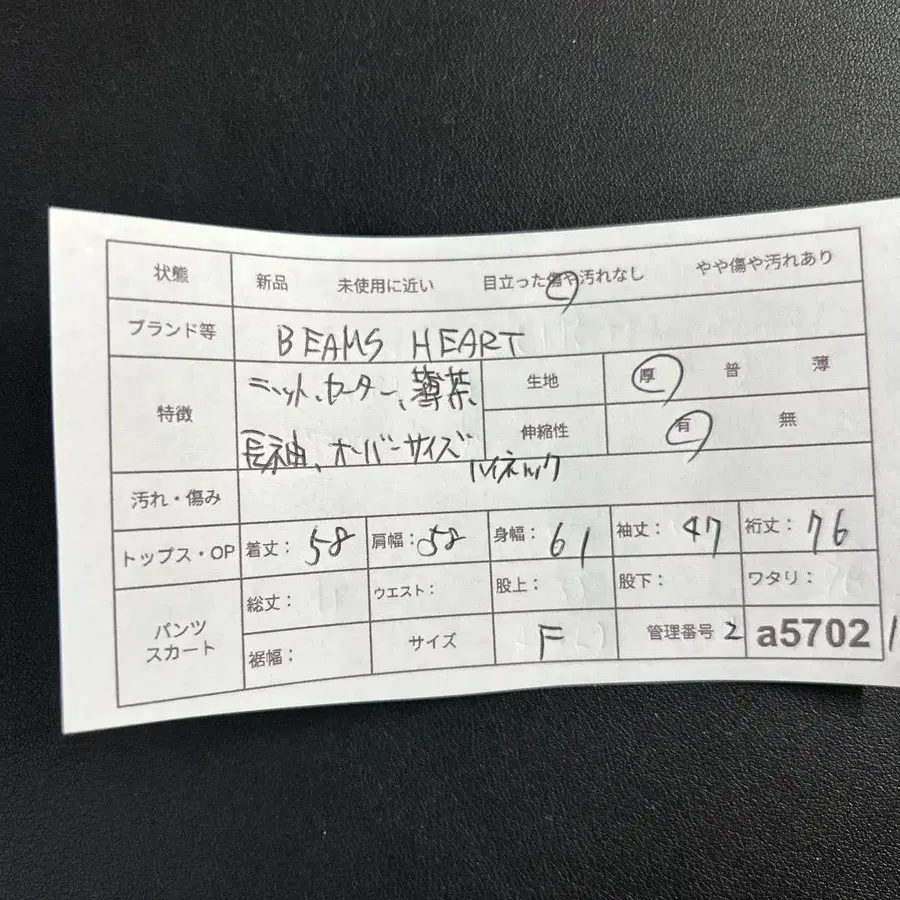 状態 新品 未使用に近い 目立った傷や汚れなし やや傷や汚れあり
ブランド等 BEAMS HEART
特徴 ニット、セーター、薄茶 生地 厚 普 薄
長袖、オーバーサイズ 伸縮性 有 無
ハイネック
汚れ・傷み
トップス・OP 着丈: 58 肩幅: 58 身幅: 61 袖丈: 47 裄丈: 76
パンツ スカート 総丈: ウエスト: 股上: 股下: ワタリ:
裾幅: サイズ F 管理番号 2 a5702 1